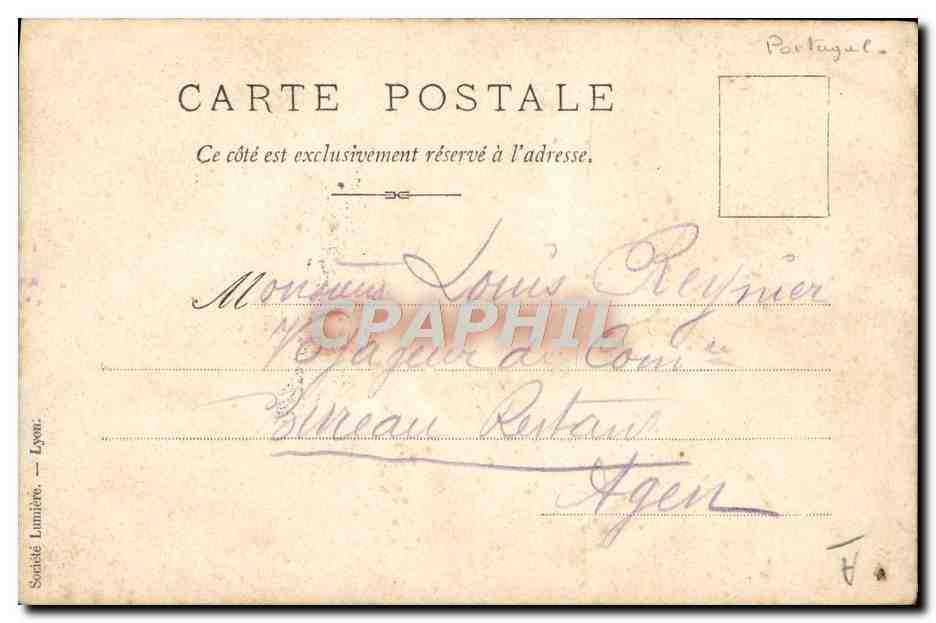 Portugal.
CARTE POSTALE
Ce côté est exclusivement réservé à l'adresse.
Monsieur Louis Reynier
CPAPHIL
Voyageur de Comce
Bureau Restant
Agen
Société Lumière. — Lyon.
A